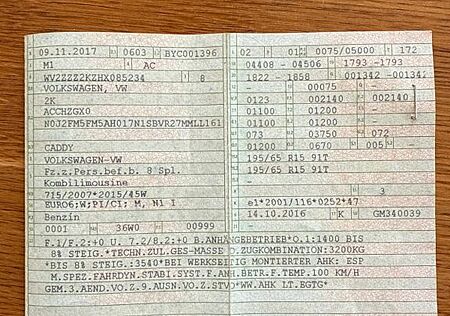 09.11.2017 0603 BYC001396
M1 AC
WVZZZ2KZHX085234 8
VOLKSWAGEN, VW
2K
ACCHZGX0
N0J2FM5FM5AH017N1SBVR27MMLL161
CADDY
VOLKSWAGEN-VW
Fz.z.Pers.bef.b. 8 Spl.
Kombilimousine
715/2007*2015/45W
EURO6;W;PI/CI; M, N1 I
Benzin
0001 36W0 00999
02 01 0075/05000 172
04408 - 04506 1793 -1793
1822 - 1858 001342 -001342
- 00075 -
0123 002140 002140
01100 01200 -
01100 01200 -
73 03750 072
01200 0670 005 -
195/65 R15 91T
195/65 R15 91T
-
- 3
e1*2001/116*0252*47
14.10.2016 K GM340039
F.1/F.2:+0 U. 7.2/8.2:+0 B.ANHÄNGEBETRIEB*O.1:1400 BIS
8% STEIG.*TECHN.ZUL.GES-MASSE D.ZUGKOMBINATION:3200KG
*BIS 8% STEIG.:3540*BEI WERKSEITIG MONTIERTER AHK: ESP
M.SPEZ.FAHRDYN.STABI.SYST.F.ANH.BETR.F.TEMP.100 KM/H
GEM.3.AEND.VO.Z.9.AUSN.VO.Z.STVO*WW.AHK LT.EGTG*